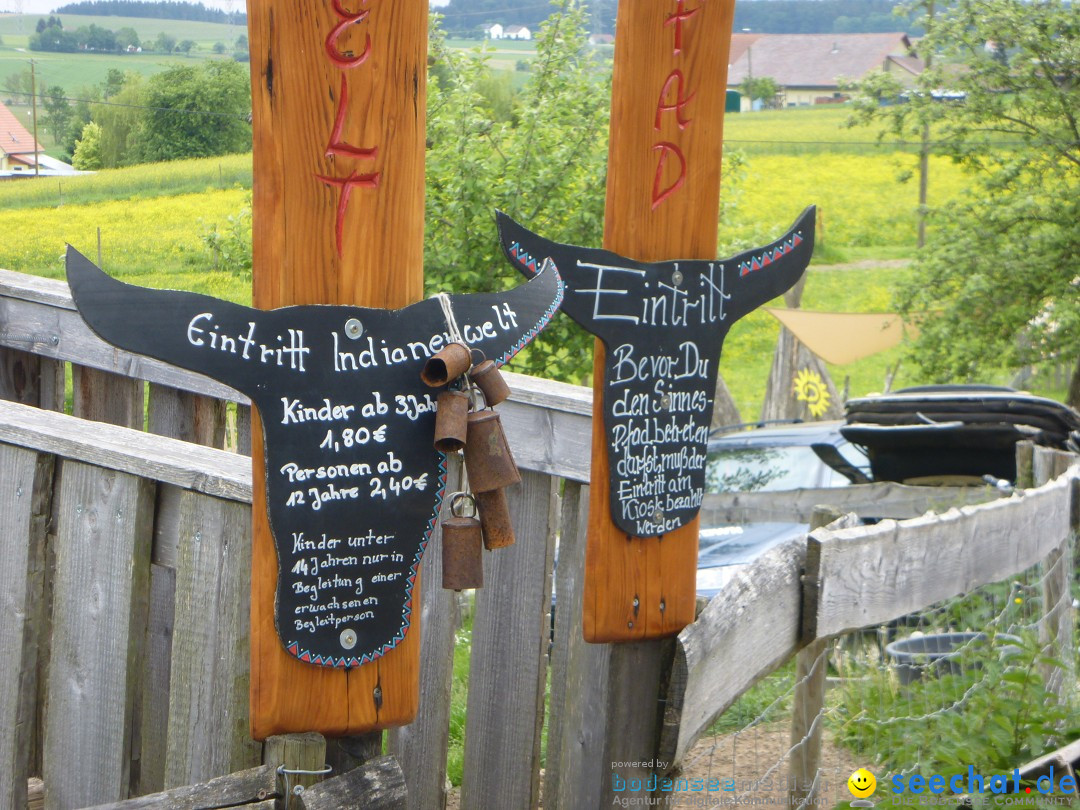 ELT
Eintritt Indianerwelt
Kinder ab 3Jahre
1,80€
Personen ab
12 Jahre 2,40€
Kinder unter
14 Jahren nur in
Begleitung einer
erwachsenen
Begleitperson
FAD
Eintritt
Bevor Du
den Sinnes-
Pfad betreten
darfst, muß der
Eintritt am
Kiosk bezahlt
werden
powered by
bodensee-community
Agentur für Digitale Kommunikation
seechat.de
Bodensee-Community